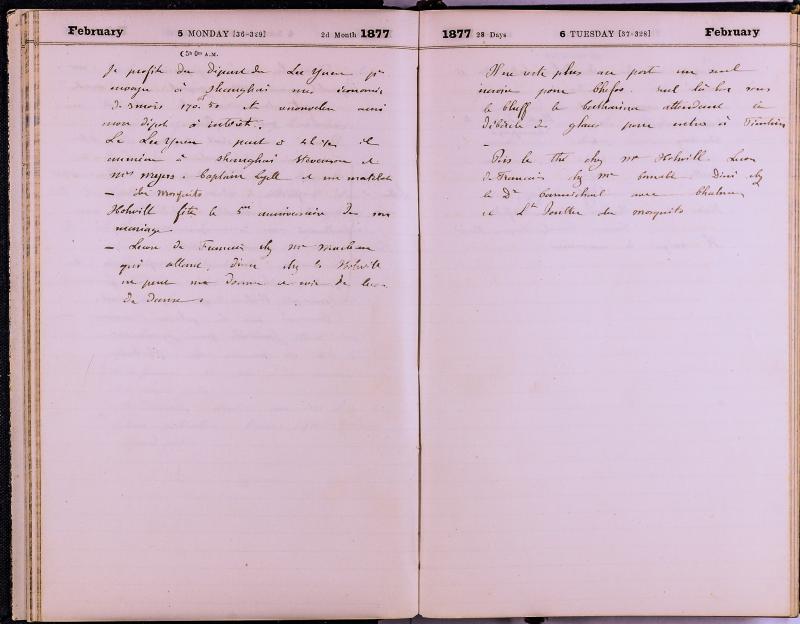 February 5 MONDAY [36-329] 2d Month 1877
A.M.
Je profite du départ du Lee Yuen pr
envoyer à Shanghai mes économies
de 3 mois et renouveler ainsi
mon dépôt à intérêt.
Le Lee Yuen part à 4h il
emmène à Shanghai Stevenson et
Mrs Myers. Captain Lyell et un matelot
— du Mosquito
Holwill fête le 5me anniversaire de son
mariage
— Lecon de Francais chez Mr
qui allant diner chez les Holwill
ne peut me donner ce soir de lecon
de danse.
1877 28 Days 6 TUESDAY [37-328] February
Il ne reste plus au port un seul
navire pour Chefoo. seul là bas sous
le bluff le Catharina attendant la
débâcle des glaces pour entrer à Tientsin
—
Pris le thé chez Mr Holwill. Lecon
de Francais chez Mr diné chez
le Dr Carmichael avec
et Lt du Mosquito